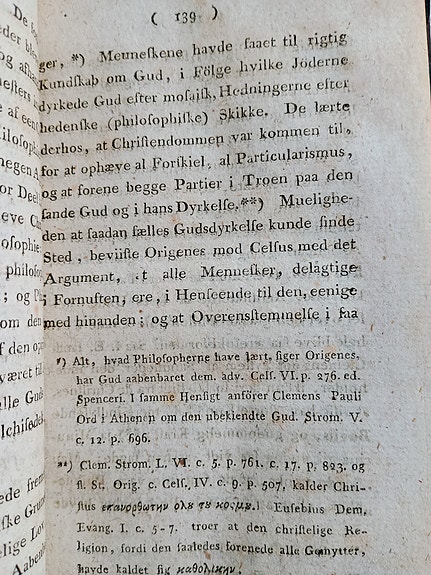 ( 139 )
ger, *) Menneſkene havde faaet til rigtig
Kundſkab om Gud, i Fölge hvilke Jöderne
dyrkede Gud efter moſaiſk, Hedningerne efter
hedenſke (philoſophiſke) Skikke. De lærte
derhos, at Chriſtendommen var kommen til,
for at ophæve al Forſkiel, al Particularismus,
og at forene begge Partier i Troen paa den
ſande Gud og i hans Dyrkelſe.**) Muelighe-
den at ſaadan fælles Gudsdyrkelſe kunde finde
Sted, beviiſte Origenes mod Celſus med det
Argument, t alle Menneſker, delagtige
i Fornuften, ere, i Henſeende til den, eenige
med hinanden; og at Overensſtemmelſe i ſaa
*) Alt, hvad Philoſopherne have lært, ſiger Origenes,
har Gud aabenbaret dem. adv. Celſ. VI. p. 276. ed.
Spenceri. I ſamme Henſigt anförer Clemens Pauli
Ord i Athenen om den ubekiendte Gud. Strom. V.
c. 12. p. 696.
**) Clem. Strom. L. VI. c. 5. p. 761. c. 17. p. 823. og
fl. St. Orig. c. Celſ. IV. c. 9. p. 507, kalder Chri-
ſtus επανορθωτην ολȣ τȣ κοσμȣ. Euſebius Dem.
Evang. I. c. 5-7. troer at den chriſtelige Re-
ligion, fordi den ſaaledes forenede alle Gemytter,
havde kaldet ſig καθολικην.